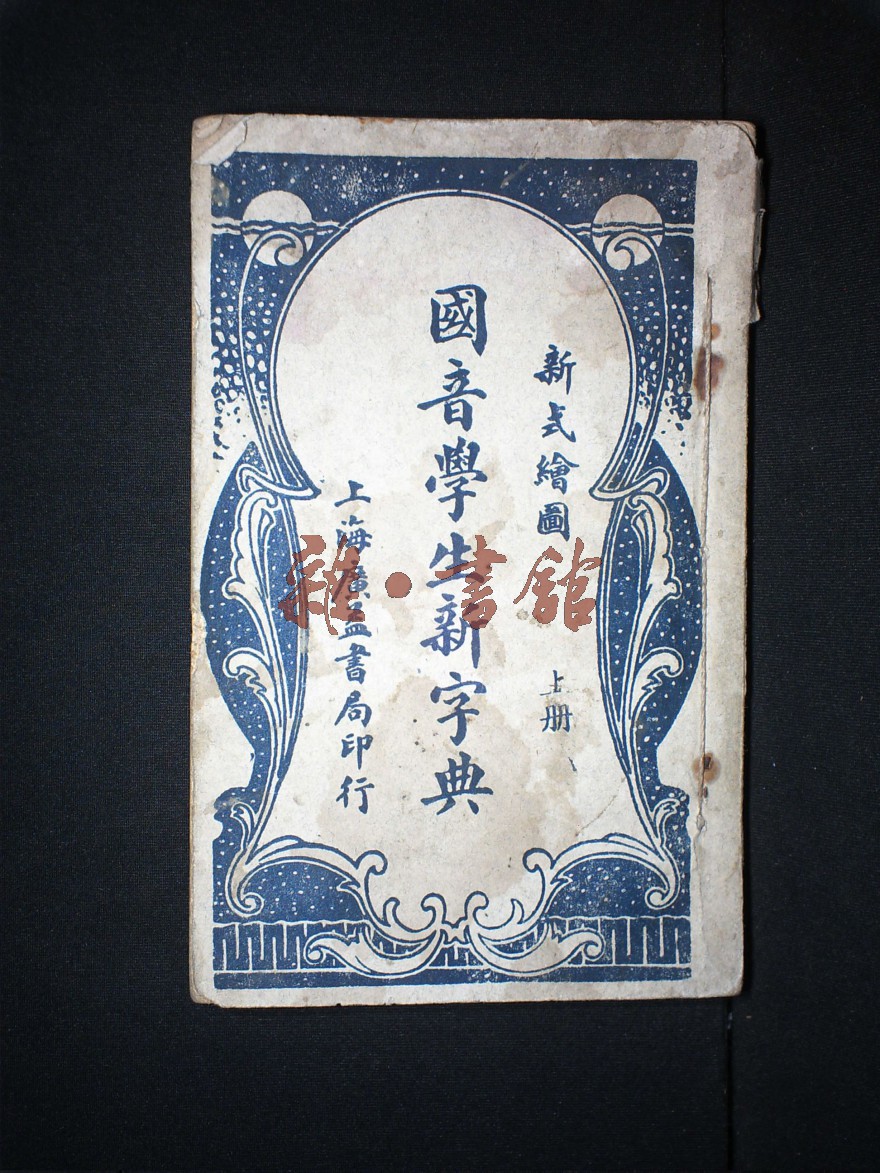 新式繪圖
上册
國音學生新字典
上海廣益書局印行
雜·書館